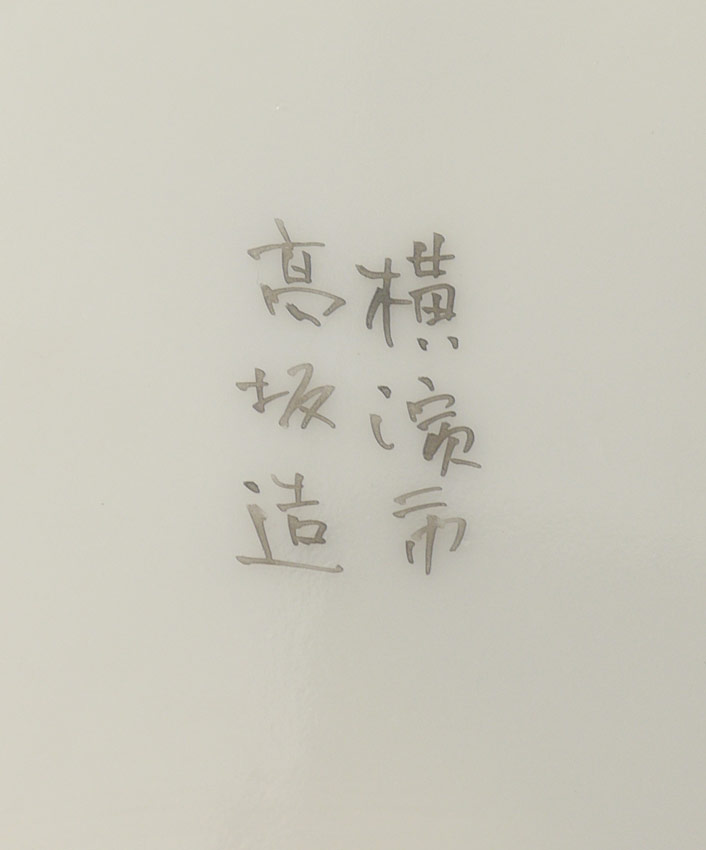 横濱市
高坂造